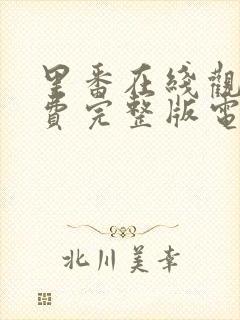 里番在綫觀
費完整版電
北川美幸